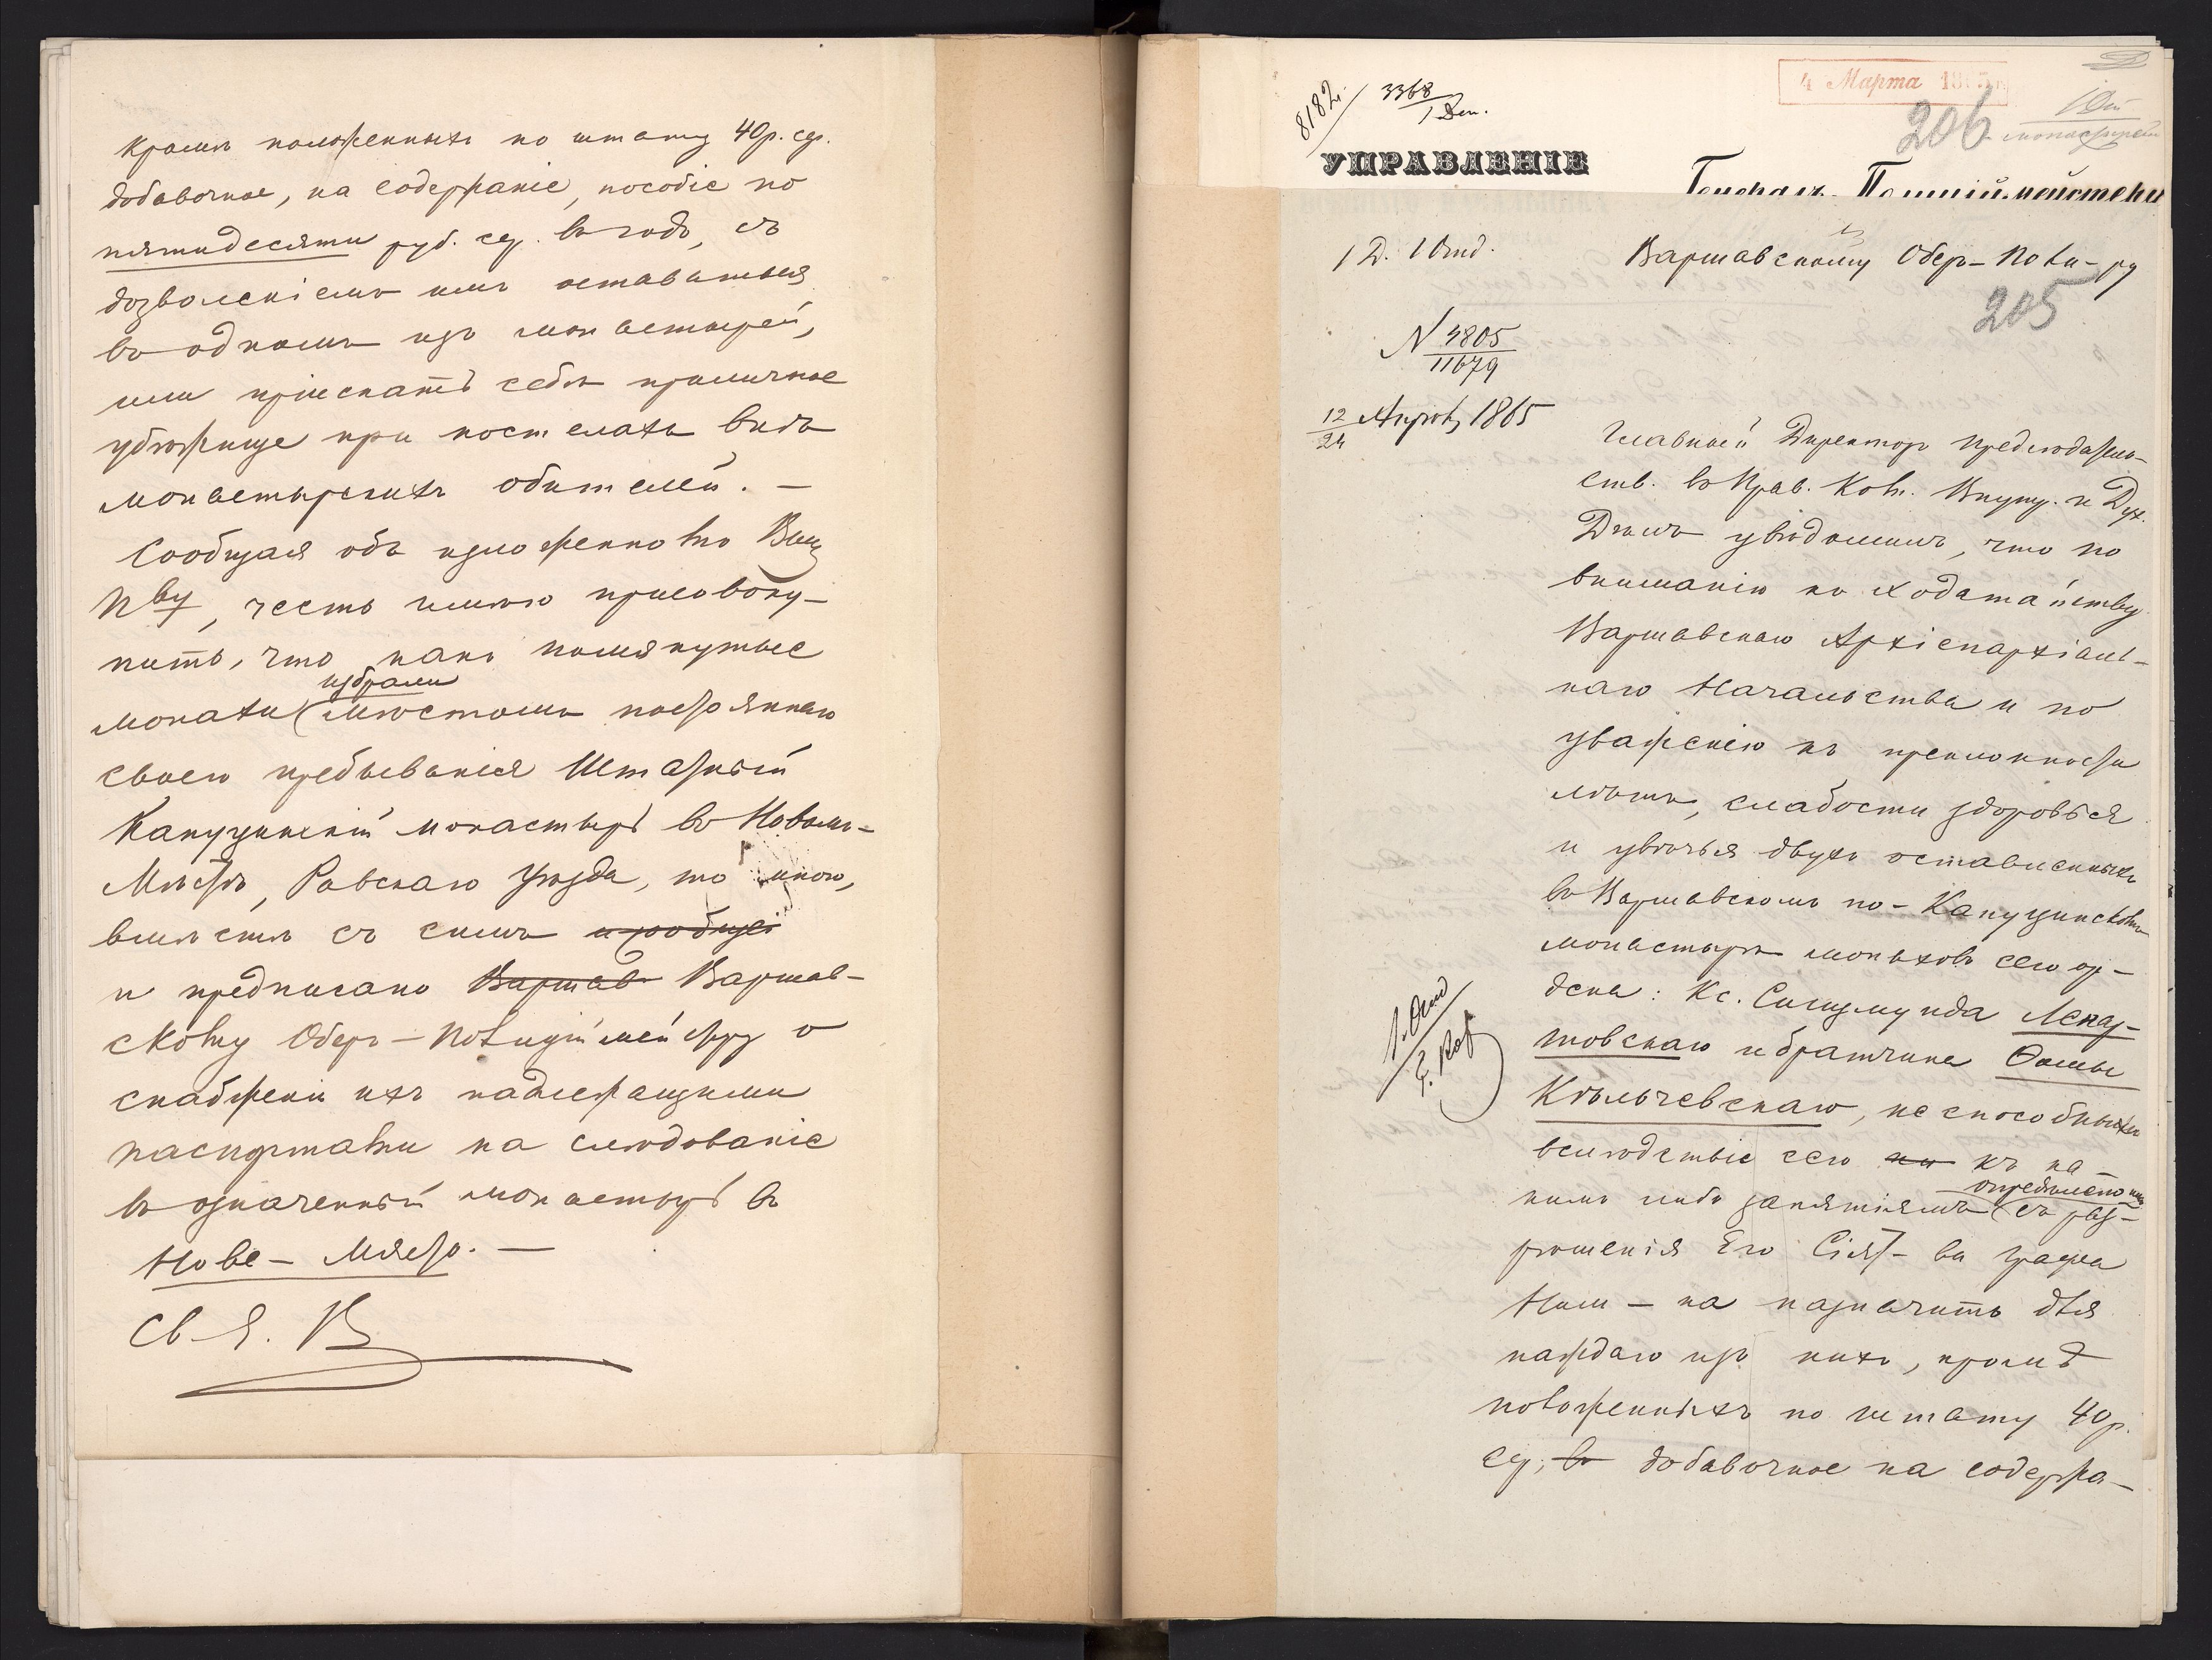 кромѣ положенныхъ по штату 40 р. ср.
добавочное, на содержаніе, пособіе по
пятидесяти руб. ср. въ годъ, съ
дозволеніемъ имъ оставаться
въ одномъ изъ монастырей,
или пріискать себѣ приличное
убѣжище при костелахъ внѣ
монастырскихъ обителей. —
Сообщая объ изложенномъ Ваш
Пву, честь имѣю присовоку-
пить, что какъ помянутые
избрали
монахи мѣстомъ постояннаго
своего пребыванія Штатный
Капуцинскій монастырь въ Новомъ-
Мѣстѣ, Равскаго Уѣзда, то мною,
вмѣстѣ съ симъ
и предписано Варшав Варшав-
скому Оберъ-Полиційместру о
снабженіи ихъ надлежащими
паспортами на слѣдованіе
въ означенный монастырь въ
Нове-Място. —
Св. Е. В
8182.
3368
1 Деп.
4 Марта 186
206
монастырей
УПРАВЛЕНІЕ
Генералъ-Полиціймейстера
1 Д. 1 Отд.
Варшавскому Оберъ-Поли-ру
205
N 4805
11679
12
24 Апрѣля 1865
Главный Директоръ предсѣдатель-
ств. въ Прав. Ком. Внутр. и Дух.
Дѣлъ увѣдомилъ, что по
вниманію къ ходатайству
Варшавскаго Архіепархіаль-
наго Начальства и по
уваженію къ преклонности
лѣтъ, слабости здоровья
и увѣчья двухъ оставленныхъ
въ Варшавскомъ по-Капуцинскомъ
монастырѣ монаховъ сего ор-
дена: Кс. Сигизмунда
товскаго и братчика Ѳомы
Кѣльчевскаго, неспособныхъ
вслѣдствіе сего къ ка-
опредѣлено имъ
кимъ либо занятіямъ съ раз-
рѣшенія Его Сіят-ва Графа
Нам-ка назначить для
каждаго изъ нихъ, кромѣ
положенныхъ по штату 40 р.
ср., въ добавочное на содержа-